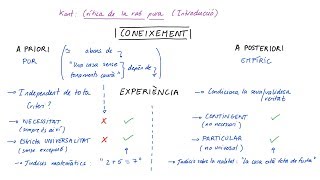 Kant: Crítica de la raó pura (Introducció)
CONEIXEMENT
A PRIORI
PUR
= abans de
"Una casa sense fonaments caurà"
depèn de
A POSTERIORI
EMPÍRIC
Independent de tota
EXPERIÈNCIA
Condiciona la seva validesa
veritat
Criteri?
NECESSITAT
(sempre és així)
x ✓
CONTINGENT
(no necessari)
ESTRICTA UNIVERSALITAT
(sense excepció)
x ✓
PARTICULAR
(no universal)
Judicis matemàtics: "2+5=7"
Judicis sobre la realitat: "La casa està feta de fusta"